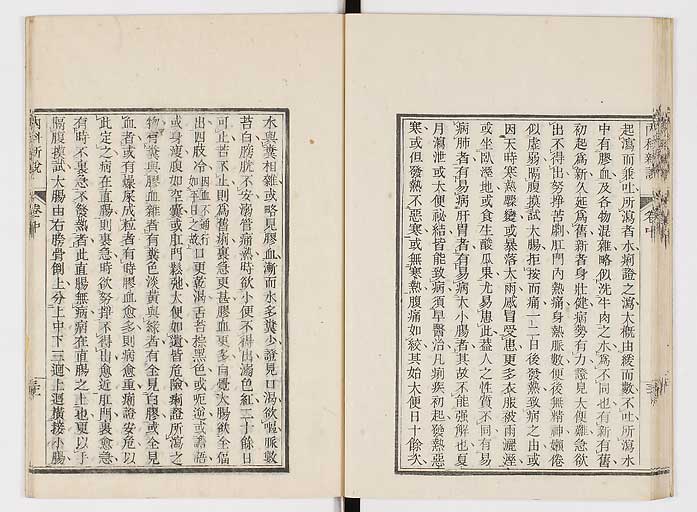 起瀉而兼吐所瀉者水痢證之瀉大概由緩而數不吐所瀉水
中有膠血及各物混雜略似洗牛肉之水爲不同也有新有舊
初起爲新久延爲舊新者身壯健病勢有力證見大便難急欲
出不得出努掙苦剧肛門內熱痛身熱脈數便後無精神懶倦
似虛弱隔腹摸試大腸拒按而痛一二日後發熱致病之由或
因天時寒熱驟變或暴落大雨感冒受患更多衣服被雨灑溼
或坐臥溼地或食生酸瓜果尤易患此蓋人之性質不同有易
病肺者有易病肝胃者有易病大小腸者其故不能強解也夏
月瀉泄或大便祕結皆能致病須早醫治凡痢疾初起發熱惡
寒或但發熱不惡寒或無寒熱腹痛如絞其始大便日十餘次
水與糞相雜或略見膠血漸而水多糞少證見口渴欲嘔脈數
苔白膀胱不安溺管痛熱時欲小便不得出溺色紅二十餘日
可止若不止則爲舊痢裏急更甚膠血更多自覺大腸欲全傴
出四肢冷因血不通行如平日之故口更乾渴舌苔棕黑色或呃逆或譫語
或身瘦腹如空囊或肛門鬆弛大便如遺皆危險痢證所瀉之
物有糞與膠血雜者有糞色淡黃與綠者有全見白膠或全見
血者或有燥屎成粒者有時膠血愈多則病愈重痢證安危以
此定之病在直腸則裏急時欲努掙不得出愈近肛門裏愈急
有時不裏急不發熱者此直腸無病病在直腸之上也更以手
隔腹摸試大腸由右膀骨倒上分上中下三迴上迴橫接小腸
內科新說
卷中